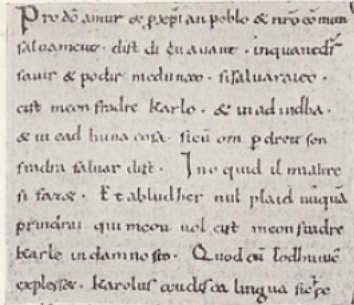 Pro dō amur & p xp̄ian poblo & nrō cōmun
saluament. dist di en auant. inquantdſ
sauir & podir medunat. sisaluaraieo.
cist meon fradre karlo. & in ad iudha.
& in cad huna cosa. sicū om p dreit son
fradra saluar dist. Ino quid il mialtre
si fazet. Et abludher nul plaid nūquā
prindrai qui meon uol cist meonfradre
karle in damno sit. Quod cū lodhuuic
explesset. karolus teudisca lingua sic